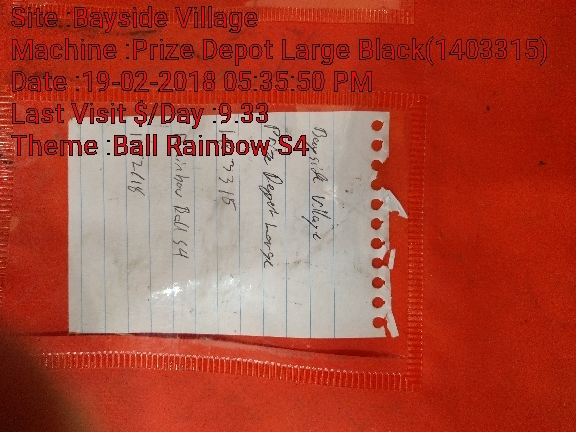 Site :Bayside Village
Machine :Prize Depot Large Black(1403315)
Date :19-02-2018 05:35:50 PM
Last Visit $/Day :9.33
Theme :Ball Rainbow S4
Bayside Village
Prize Depot Large
3315
Ball S4
2018